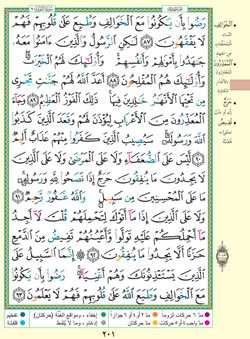 رَضُوا۟ بِأَن يَكُونُوا۟ مَعَ ٱلْخَوَالِفِ وَطُبِعَ عَلَىٰ قُلُوبِهِمْ فَهُمْ
لَا يَفْقَهُونَ ٨٧ لَـٰكِنِ ٱلرَّسُولُ وَٱلَّذِينَ ءَامَنُوا۟ مَعَهُۥ
جَـٰهَدُوا۟ بِأَمْوَٰلِهِمْ وَأَنفُسِهِمْ ۚ وَأُو۟لَـٰٓئِكَ لَهُمُ ٱلْخَيْرَٰتُ ۖ
وَأُو۟لَـٰٓئِكَ هُمُ ٱلْمُفْلِحُونَ ٨٨ أَعَدَّ ٱللَّهُ لَهُمْ جَنَّـٰتٍ تَجْرِى
مِن تَحْتِهَا ٱلْأَنْهَـٰرُ خَـٰلِدِينَ فِيهَا ۚ ذَٰلِكَ ٱلْفَوْزُ ٱلْعَظِيمُ ٨٩ وَجَآءَ
ٱلْمُعَذِّرُونَ مِنَ ٱلْأَعْرَابِ لِيُؤْذَنَ لَهُمْ وَقَعَدَ ٱلَّذِينَ كَذَبُوا۟
ٱللَّهَ وَرَسُولَهُۥ ۚ سَيُصِيبُ ٱلَّذِينَ كَفَرُوا۟ مِنْهُمْ عَذَابٌ أَلِيمٌ
٩٠ لَّيْسَ عَلَى ٱلضُّعَفَآءِ وَلَا عَلَى ٱلْمَرْضَىٰ وَلَا عَلَى ٱلَّذِينَ
لَا يَجِدُونَ مَا يُنفِقُونَ حَرَجٌ إِذَا نَصَحُوا۟ لِلَّهِ وَرَسُولِهِۦ ۚ
مَا عَلَى ٱلْمُحْسِنِينَ مِن سَبِيلٍ ۚ وَٱللَّهُ غَفُورٌ رَّحِيمٌ ٩١
وَلَا عَلَى ٱلَّذِينَ إِذَا مَآ أَتَوْكَ لِتَحْمِلَهُمْ قُلْتَ لَآ أَجِدُ
مَآ أَحْمِلُكُمْ عَلَيْهِ تَوَلَّوا۟ وَّأَعْيُنُهُمْ تَفِيضُ مِنَ ٱلدَّمْعِ
حَزَنًا أَلَّا يَجِدُوا۟ مَا يُنفِقُونَ ٩٢ إِنَّمَا ٱلسَّبِيلُ عَلَى
ٱلَّذِينَ يَسْتَـْٔذِنُونَكَ وَهُمْ أَغْنِيَآءُ ۚ رَضُوا۟ بِأَن يَكُونُوا۟
مَعَ ٱلْخَوَالِفِ وَطَبَعَ ٱللَّهُ عَلَىٰ قُلُوبِهِمْ فَهُمْ لَا يَعْلَمُونَ ٩٣
٢٠١